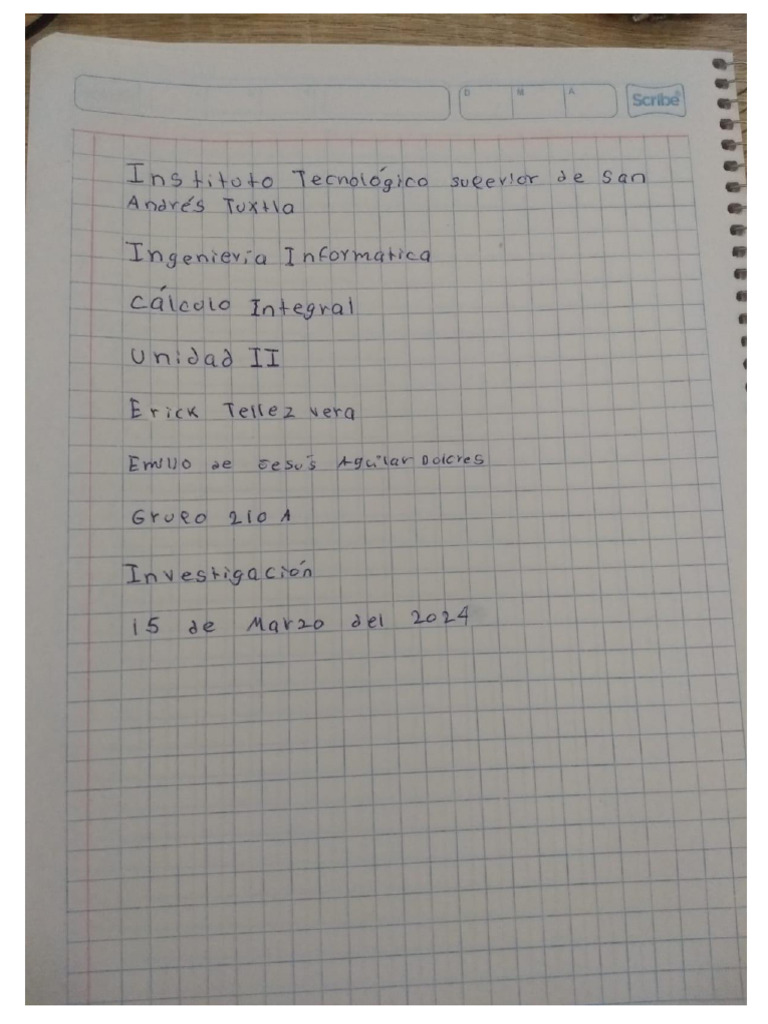 D M A Scribe
Instituto Tecnológico superior de san
Andrés Tuxtla
Ingeniería Informatica
Cálculo Integral
Unidad II
Erick Tellez vera
Emilio de Jesús Aguilar Dolores
Grupo 210 A
Investigación
15 de Marzo del 2024